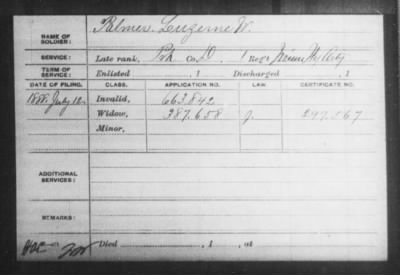 Palmer, Luzerne W.
NAME OF
SOLDIER:
SERVICE: Late rank, Pvt Co. D, 1 Reg't Hvy Arty
TERM OF
SERVICE: Enlisted , 1 Discharged , 1
DATE OF FILING. CLASS. APPLICATION NO. LAW. CERTIFICATE NO.
1888, July 12 Invalid, 663.842
Widow, 387.658 J. 297.567
Minor,
ADDITIONAL
SERVICES:
REMARKS:
Died , 1 , at